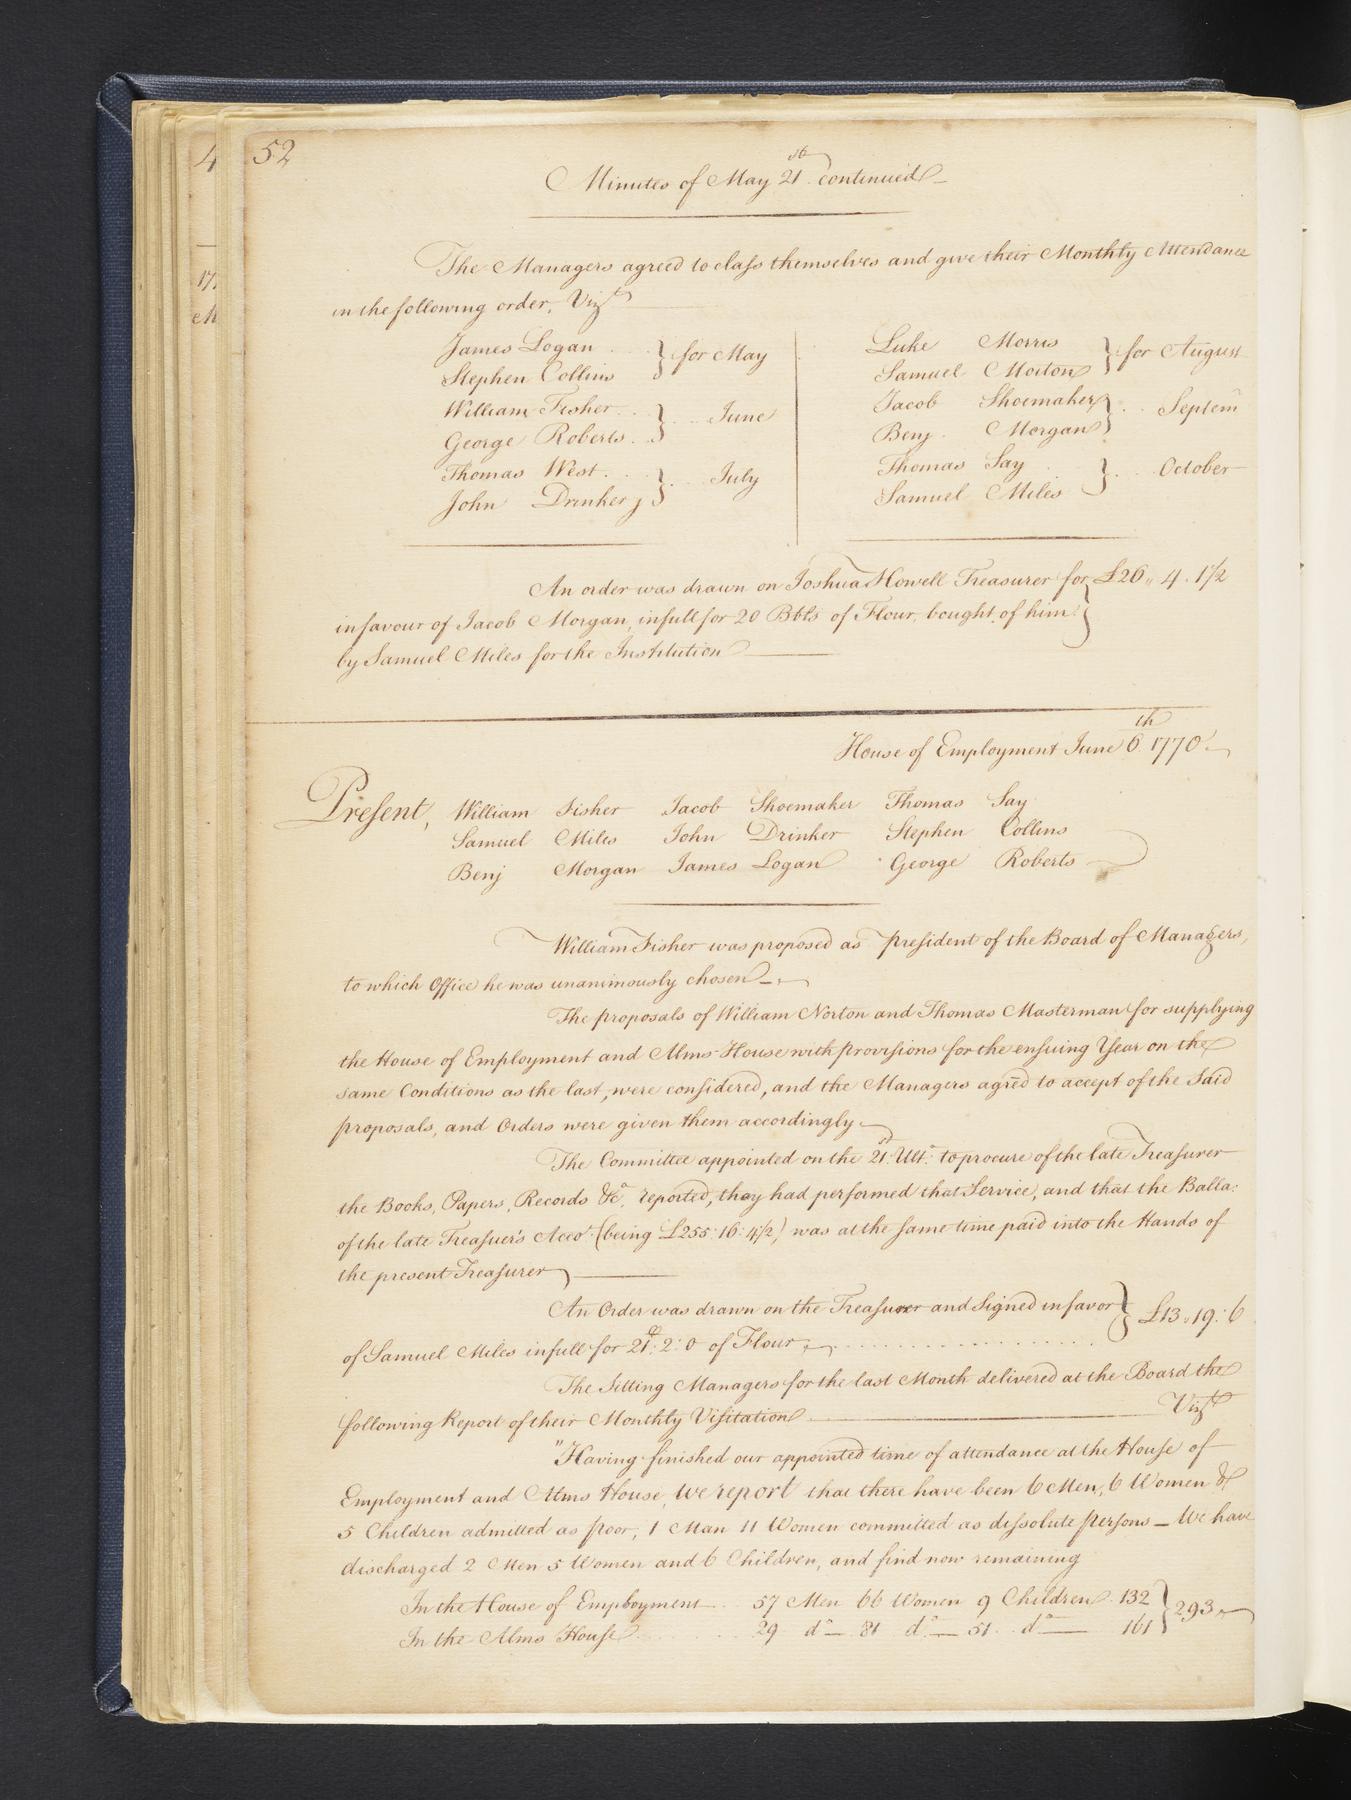 52
Minutes of May 21st. continued
The Managers agreed to class themselves and give their Monthly Attendance
in the following order, Vizt
James Logan
Stephen Collins } for May
William Fisher
George Roberts } June
Thomas West
John Drinker j } July
Luke Morris
Samuel Morton } for August
Jacob Shoemaker
Benj. Morgan } Septem
Thomas Say
Samuel Miles } October
An order was drawn on Joshua Howell Treasurer for £26 „ 4 . 1 1/2
in favour of Jacob Morgan, in full for 20 Bbls of Flour, bought of him }
by Samuel Miles for the Institution
House of Employment June 6th 1770
Present, William Fisher Jacob Shoemaker Thomas Say
Samuel Miles John Drinker Stephen Collins
Benj Morgan James Logan George Roberts
William Fisher was proposed as President of the Board of Managers,
to which Office he was unanimously chosen
The proposals of William Norton and Thomas Masterman for supplying
the House of Employment and Alms-House with provisions for the ensuing Year on the
same Conditions as the last, were considered, and the Managers agred to accept of the Said
proposals, and Orders were given them accordingly
The Committee appointed on the 21st. Ulto. to procure of the late Treasurer
the Books, Papers, Records &ca. reported, they had performed that Service, and that the Balla:
of the late Treasuer's Acco.t (being £255:16:4 1/2) was at the same time paid into the Hands of
the present Treasurer
An Order was drawn on the Treasurer and Signed in favor } £13 „ 19: 6
of Samuel Miles in full for 21: 2: 0 of Flour
The Sitting Managers for the last Month delivered at the Board the
following Report of their Monthly Visitation Vizt
"Having finished our appointed time of attendance at the House of
Employment and Alms House, we report that there have been 6 Men, 6 Women &
5 Children admitted as poor, 1 Man 11 Women committed as dissolute persons — We have
discharged 2 Men 5 Women and 6 Children, and find now remaining
In the House of Employment 57 Men 66 Women 9 Children 132 } 293
In the Alms House 29 do 81 do 51 do 161